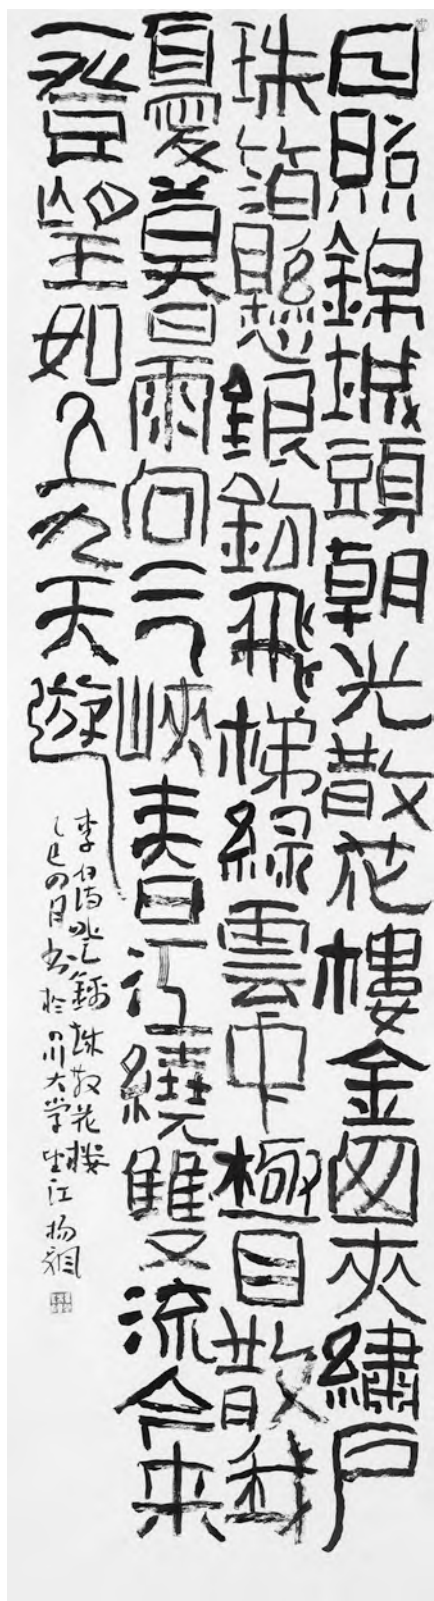 日照錦城頭朝光散花樓金囱夾繡户
珠箔懸銀鈎飛梯緑雲中極目散我
憂暮雨向三峽春江繞雙流今来
一登望如上九天遊
李白诗登錦城散花楼
乙巳四月书於四川大学望江